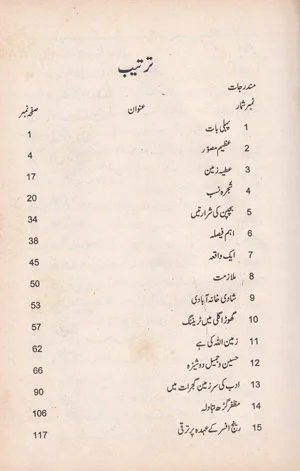 ترتیب
مندرجات
نمبر شمار عنوان صفحہ نمبر
1 پہلی بات 1
2 عظیم مصوّر 4
3 عطیہ زمین 17
4 شجرہ نسب 20
5 بچپن کی شرارتیں 34
6 اہم فیصلہ 38
7 ایک واقعہ 45
8 ملازمت 50
9 شادی خانہ آبادی 53
10 گھوڑا گلی میں ٹریننگ 57
11 زمین اللہ کی ہے 62
12 حسین و جمیل دوشیزہ 66
13 ادب کی سرزمین گجرات میں 90
14 مظفر گڑھ تبادلہ 106
15 رینج افسر کے عہدہ پر ترقی 117